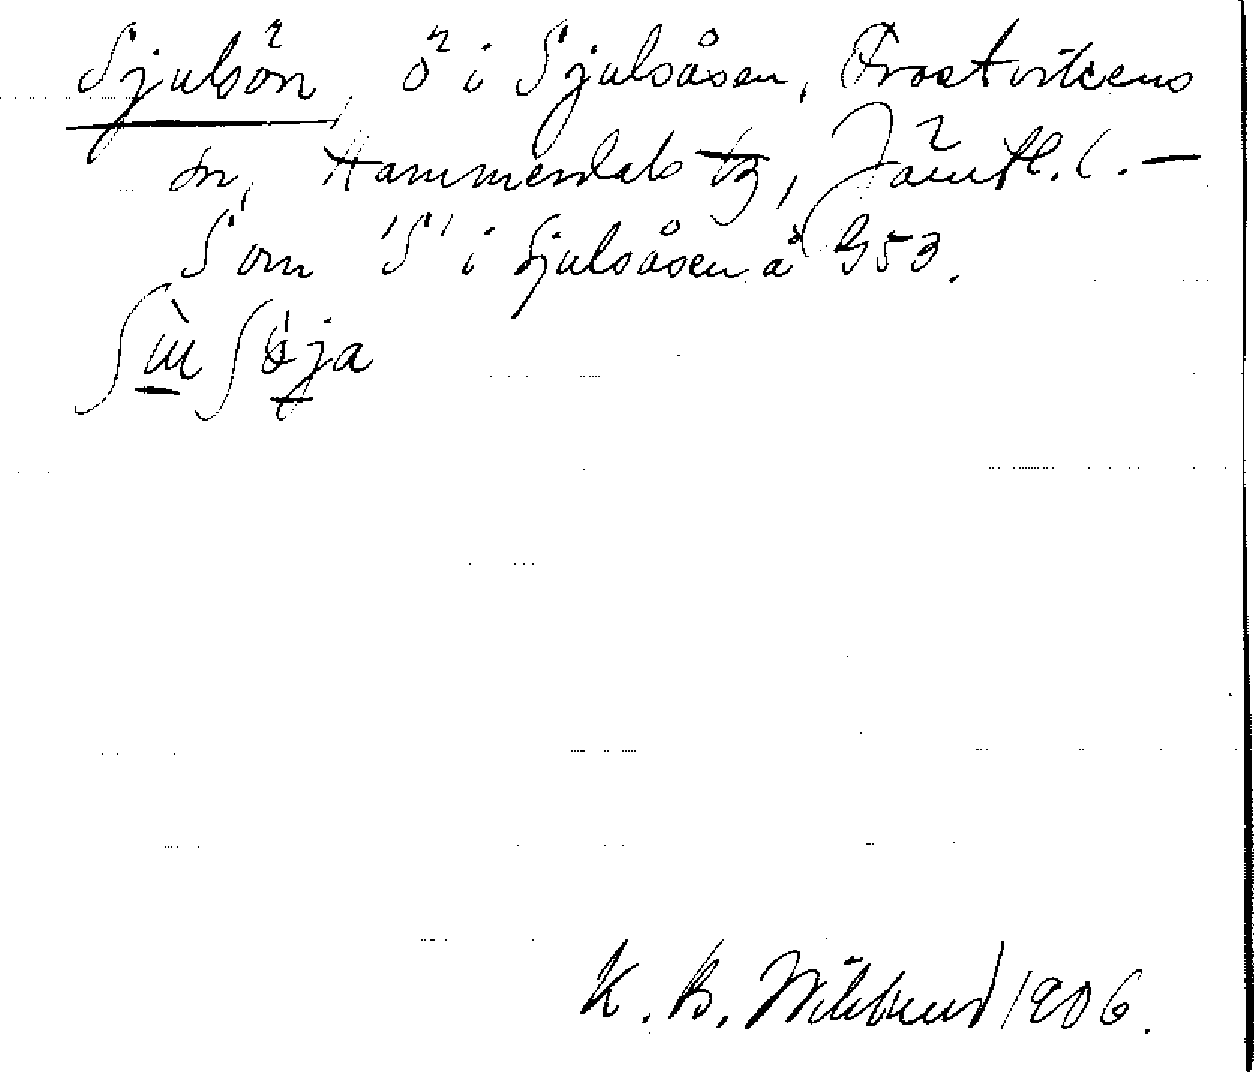 Sjulsön, ö i Sjulsåsen, Frostvikens
sn, Hammerdals tg, Jämtl. l. —
Som 'S' i Sjulsåsen å G53.
K. B. Wiklund 1906.